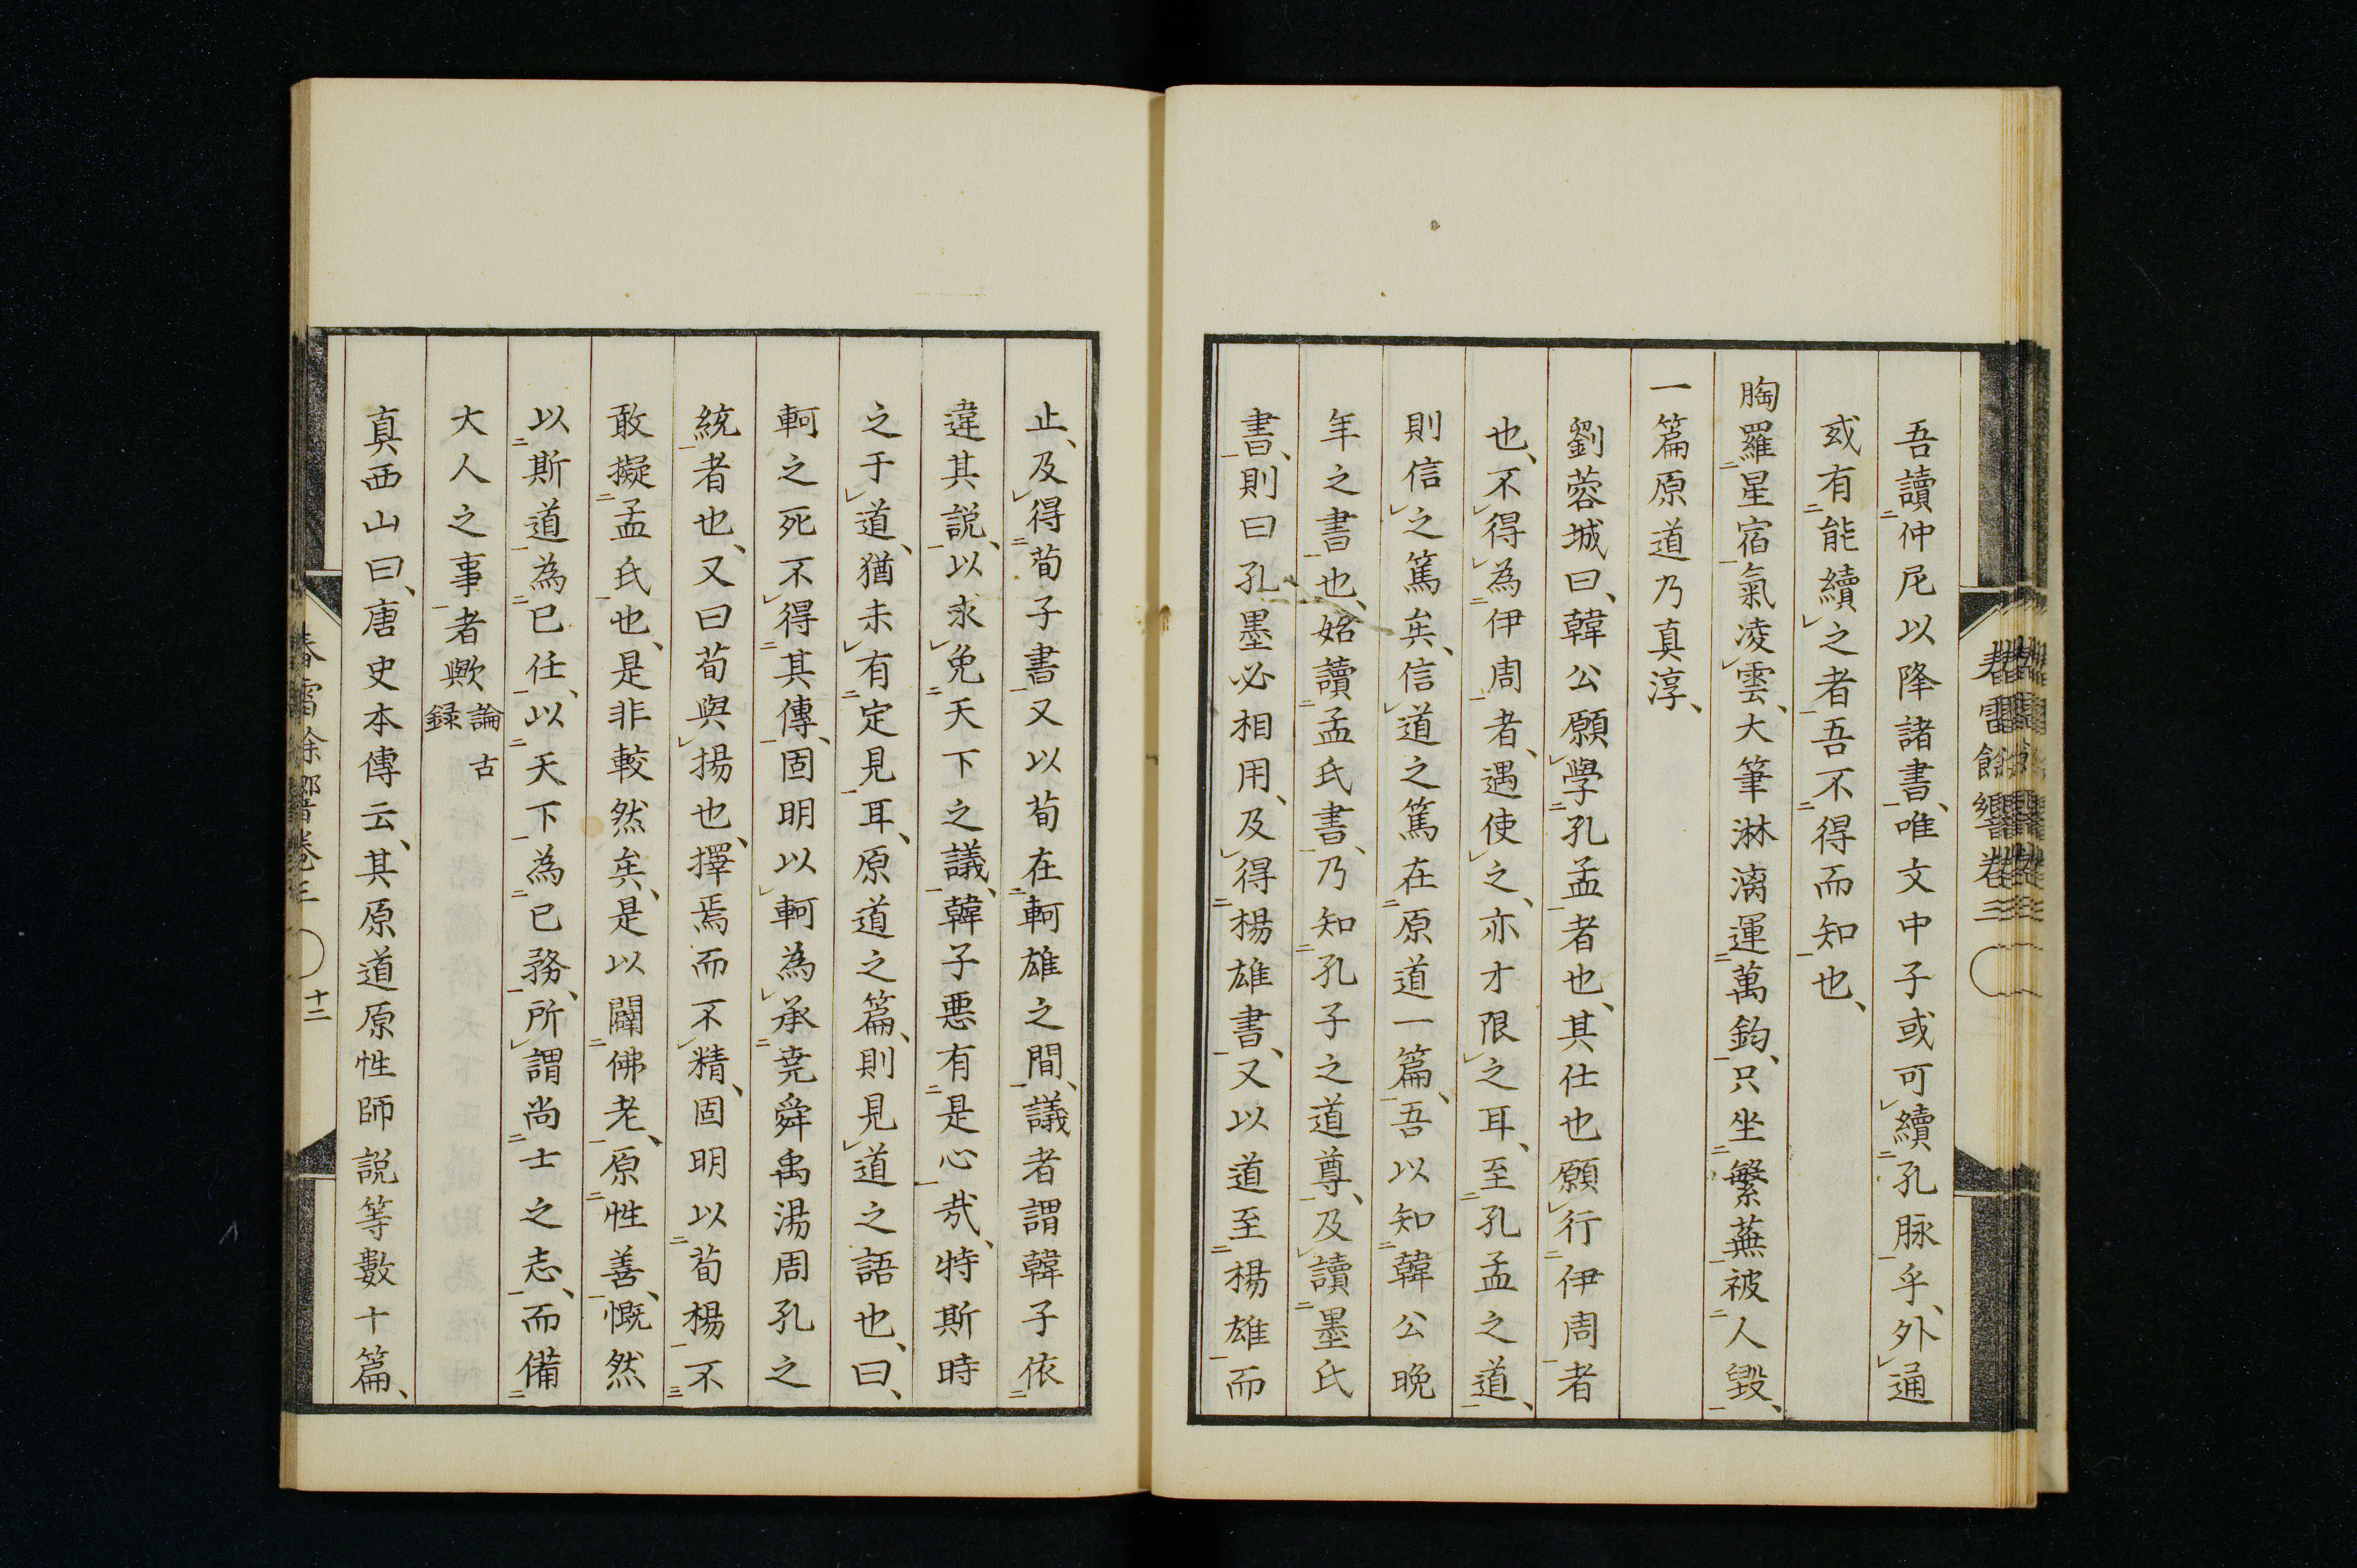 吾讀仲尼以降諸書、唯文中子或可續孔脉乎、外通
或有能續之者吾不得而知也、
胸羅星宿氣凌雲、大筆淋漓運萬鈞、只坐繁蕪被人毀、
一篇原道乃真淳、
劉蓉城曰、韓公願學孔孟者也、其仕也願行伊周者
也、不得為伊周者、遇使之、亦才限之耳、至孔孟之道、
則信之篤矣、信道之篤在原道一篇、吾以知韓公晩
年之書也、始讀孟氏書、乃知孔子之道尊、及讀墨氏
書、則曰孔墨必相用、及得楊雄書、又以道至楊雄而
春雷餘響卷三
止、及得荀子書又以荀在軻雄之間、議者謂韓子依
違其説、以求免天下之議、韓子惡有是心哉、特斯時
之于道、猶未有定見耳、原道之篇、則見道之語也、曰、
軻之死不得其傳、固明以軻為承堯舜禹湯周孔之
統者也、又曰荀與揚也、擇焉而不精、固明以荀楊不
敢擬孟氏也、是非較然矣、是以闢佛老、原性善、慨然
以斯道為已任、以天下為已務、所謂尚士之志、而備
大人之事者歟 論古録
真西山曰、唐史本傳云、其原道原性師説等數十篇、
春雷餘響卷三 十二